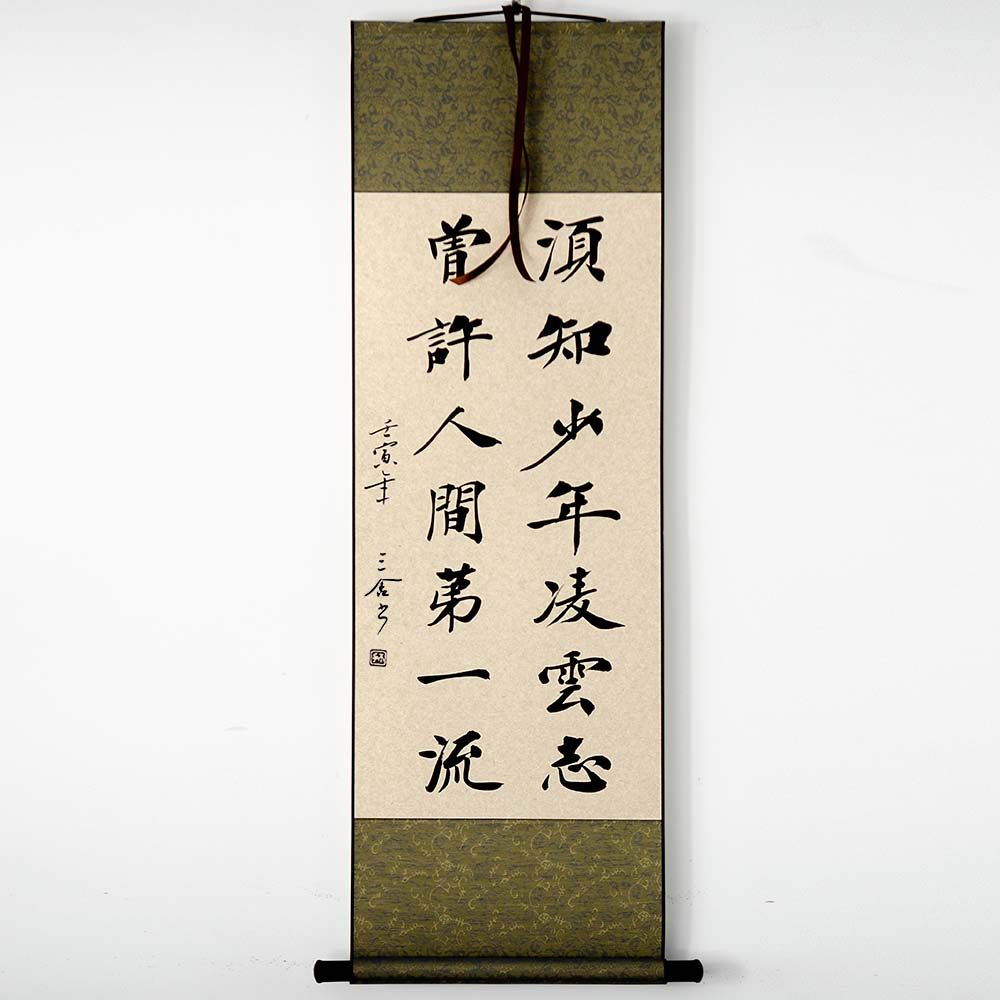 須知少年凌雲志
曾許人間第一流
壬寅年 三金书